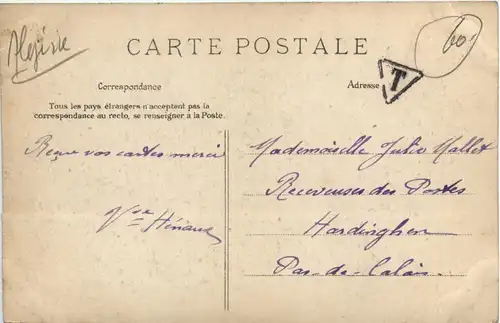 Algérie
60
CARTE POSTALE
T
Correspondance
Adresse
Tous les pays étrangers n'acceptant pas la
correspondance au recto, se renseigner à la Poste.
Reçue vos cartes merci
Vve Hénaux
Mademoiselle Julie Mallet
Receveuses des Postes
Hardinghen
Pas-de-Calais.